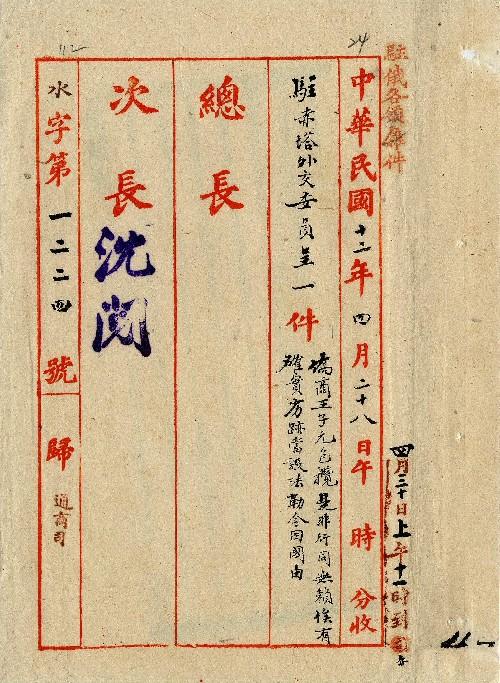 24
駐俄各領舘件
四月三十日上午十一時到
中華民國十二年四月二十八日午 時 分收
駐赤塔外交委員呈一件
僑商王子元包攬是非行同無賴俟有
確實劣跡當設法勒令回國由
總長
次長
沈閱
水字第一二二四號
歸
通商司